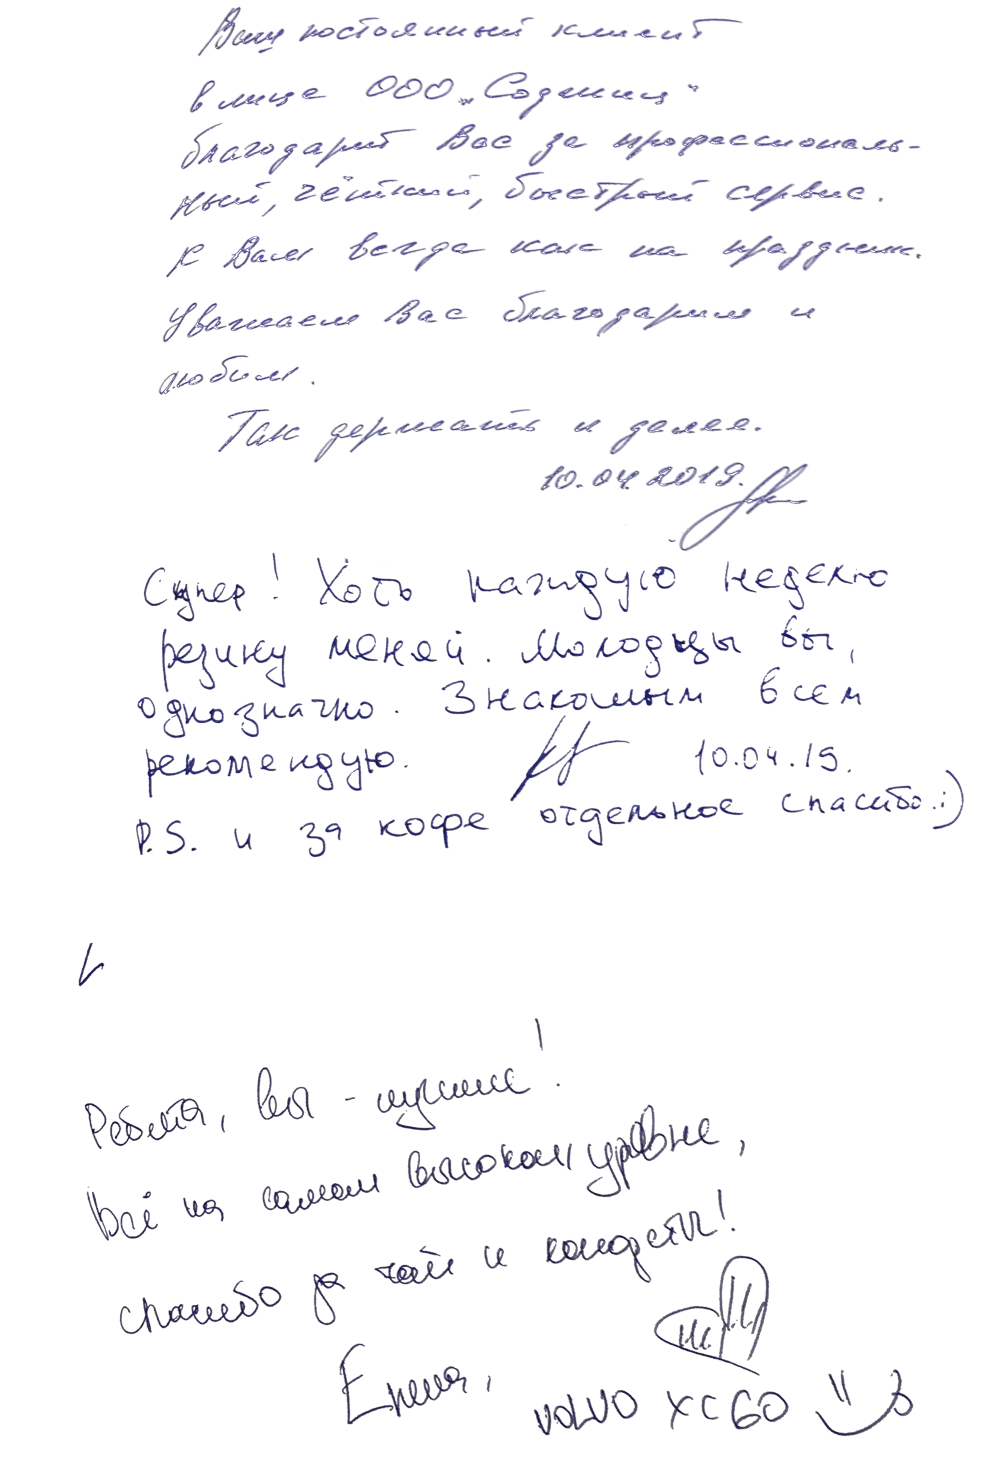 Ваш постоянный клиент
в лице ООО „
благодарит Вас за профессиональ-
ный, чёткий, быстрый сервис.
К Вам всегда как на праздник.
Уважаем Вас благодарим и
любим.
Так держать и далее.
10.04.2019.
Супер! Хоть каждую неделю
резину меняй. Молодцы вы,
однозначно. Знакомым всем
рекомендую.
10.04.19.
P.S. и за кофе отдельное спасибо.:)
Ребята, вы - лучшие!
Всё на самом высоком уровне,
спасибо за чай и конфеты!
VOLVO XC60